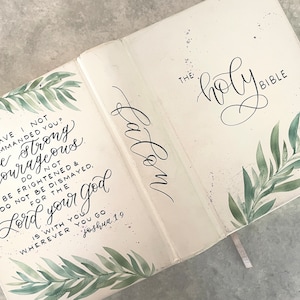 HAVE I NOT
COMMANDED YOU?
be strong
courageous
DO NOT
BE FRIGHTENED &
DO NOT BE DISMAYED,
FOR THE
Lord your God
IS WITH YOU
WHEREVER YOU GO
Joshua 1:9
THE holy BIBLE